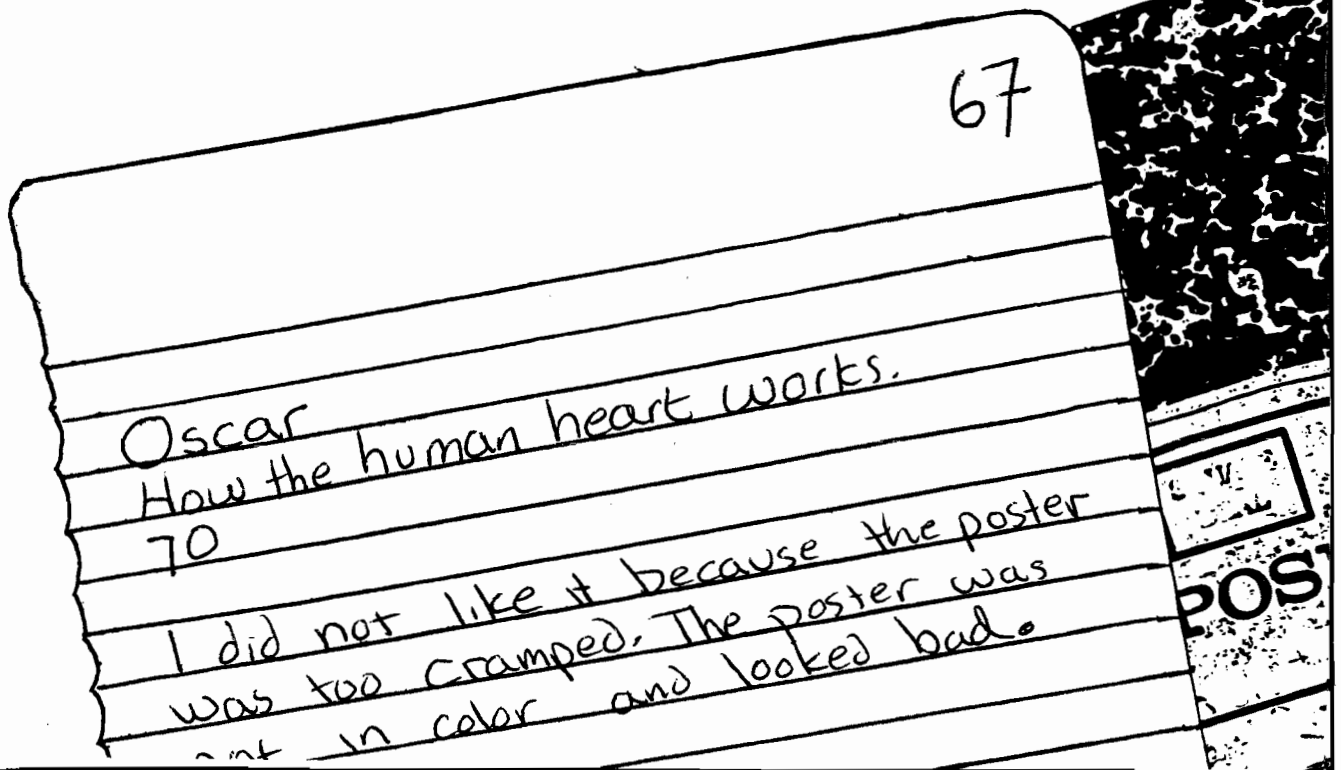 67
Oscar
How the human heart works.
70
I did not like it because the poster
was too cramped. The poster was
in color and looked bad.
POS